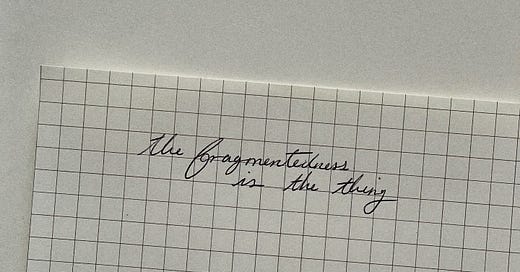 the fragmentedness
is the thing